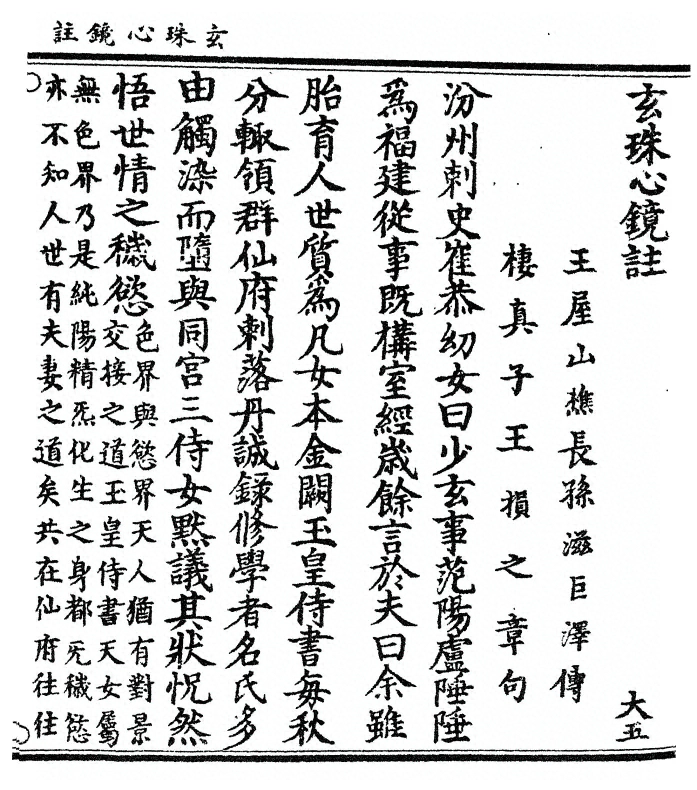 玄珠心鏡註
玄珠心鏡註
大五
王屋山樵長孫滋巨澤傳
棲真子王損之章句
汾州刺史崔恭幼女曰少玄事范陽盧陲陲
為福建從事既構室經歲餘言於夫曰余雖
胎育人世質為凡女本金闕玉皇侍書每秋
分輙領群仙府刺落丹誠錄修學者名氏多
由觸染而墮與同宮三侍女默議其狀怳然
悟世情之穢慾
色界與慾界天人猶有對景
交接之道玉皇侍書天女屬
無色界乃是純陽精炁化生之身都旡穢慾
亦不知人世有夫妻之道矣共在仙府往往